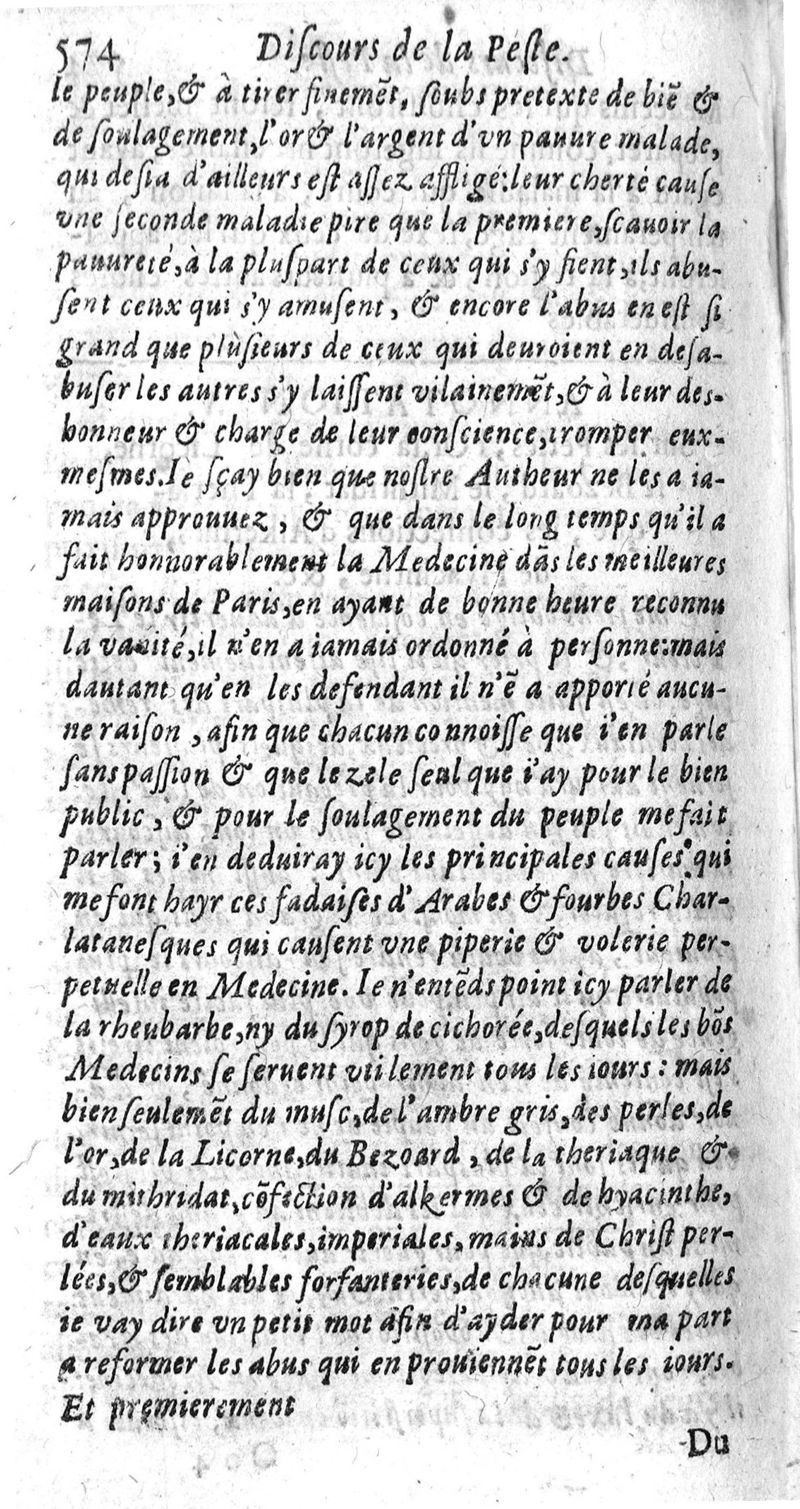 574 Diſcours de la Peſte.
le peuple,& à tirer finemẽt, ſoubs pretexte de biẽ &
de ſoulagement,l'or& l'argent d'vn pauure malade,
qui deſia d'ailleurs eſt aſſez affligé:leur cherté cauſe
vne ſeconde maladie pire que la premiere,ſcauoir la
pauureté,à la pluſpart de ceux qui s'y fient,ils abu-
ſent ceux qui s'y amuſent, & encore l'abus en eſt ſi
grand que plùſieurs de ceux qui deuroient en deſa-
buſer les autres s'y laiſſent vilainemẽt,& à leur des-
honneur & charge de leur conſcience,tromper eux-
meſmes.Ie ſçay bien que noſtre Autheur ne les a ia-
mais approuuez, & que dans le long temps qu'il a
fait honnorablement la Medecine dãs les meilleures
maiſons de Paris,en ayant de bonne heure reconnu
la vanité,il n'en a iamais ordonné à perſonne:mais
dautant qu'en les defendant il n'ẽ a apporté aucu-
ne raiſon, afin que chacun connoiſſe que i'en parle
ſans paſſion & que le zele ſeul que i'ay pour le bien
public, & pour le ſoulagement du peuple me fait
parler; i'en deduiray icy les principales cauſes qui
me font hayr ces fadaiſes d'Arabes & fourbes Char-
lataneſques qui cauſent vne piperie & volerie per-
petuelle en Medecine. Ie n'entẽds point icy parler de
la rheubarbe,ny du ſyrop de cichorée,deſquels les bõs
Medecins ſe ſeruent vtilement tous les iours: mais
bien ſeulemẽt du muſc,de l'ambre gris,des perles,de
l'or,de la Licorne,du Bezoard, de la theriaque &
du mithridat,cõfection d'alkermes & de hyacinthe,
d'eaux theriacales,imperiales,mains de Chriſt per-
lées,& ſemblables forfanteries,de chacune deſquelles
ie vay dire vn petit mot afin d'ayder pour ma part
a reformer les abus qui en prouiennẽt tous les iours.
Et premierement
Du